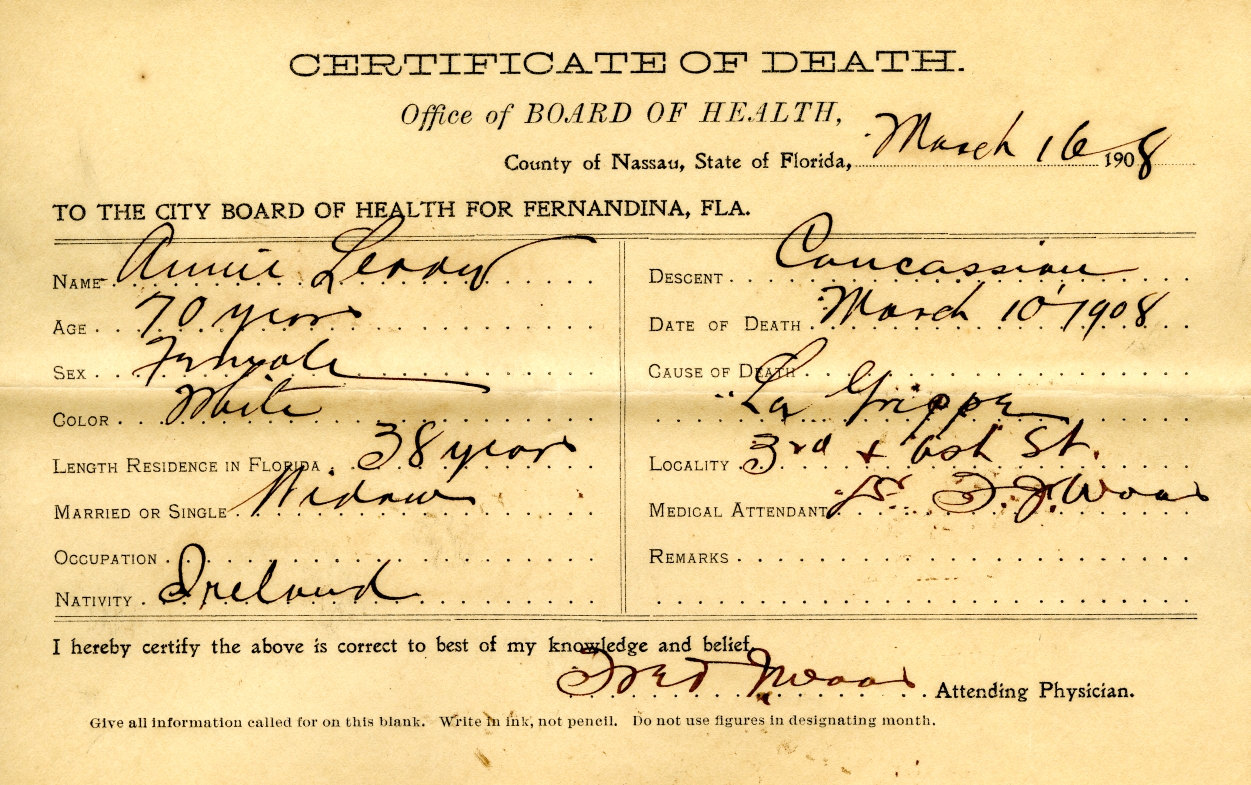 CERTIFICATE OF DEATH.
Office of BOARD OF HEALTH,
County of Nassau, State of Florida, March 16 1908
TO THE CITY BOARD OF HEALTH FOR FERNANDINA, FLA.
NAME Annie Leddy
AGE 70 years
SEX Female
COLOR White
LENGTH RESIDENCE IN FLORIDA 38 years
MARRIED OR SINGLE Widow
OCCUPATION
NATIVITY Ireland
DESCENT Concassian
DATE OF DEATH March 10 1908
CAUSE OF DEATH
La Grippe
LOCALITY 3rd + Ash St.
MEDICAL ATTENDANT Dr J. Wood
REMARKS
I hereby certify the above is correct to best of my knowledge and belief,
Wood Attending Physician.
Give all information called for on this blank. Write in ink, not pencil. Do not use figures in designating month.